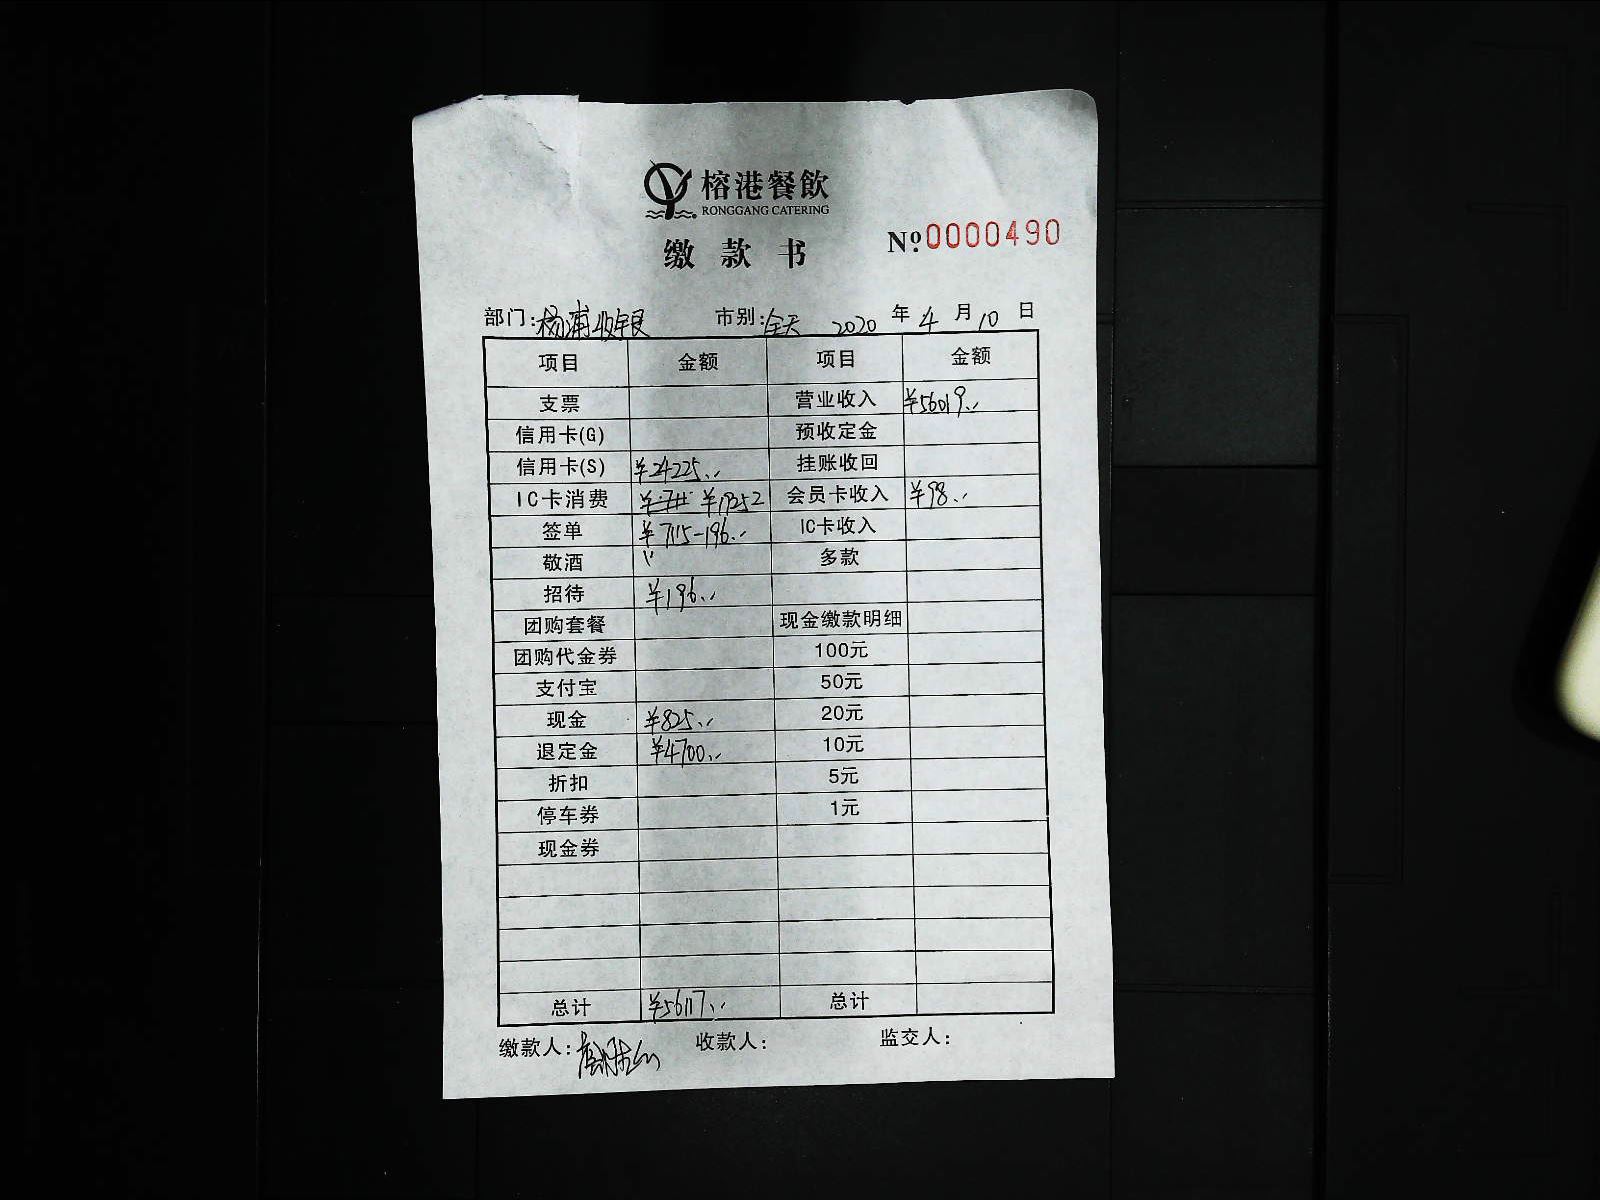 榕港餐飲
RONGGANG CATERING
缴款书
№ 0000490
部门: 杨浦收银 市别: 全天 2020 年 4 月 10 日
项目 金额 项目 金额
支票 营业收入 ¥56019..
信用卡(G) 预收定金
信用卡(S) ¥24225.. 挂账收回
IC卡消费 ¥19252 会员卡收入 ¥98..
签单 ¥7115-196.. IC卡收入
敬酒 多款
招待 ¥196..
团购套餐 现金缴款明细
团购代金券 100元
支付宝 50元
现金 ¥825.. 20元
退定金 ¥4700.. 10元
折扣 5元
停车券 1元
现金券
总计 ¥56117.. 总计
缴款人: 收款人: 监交人: